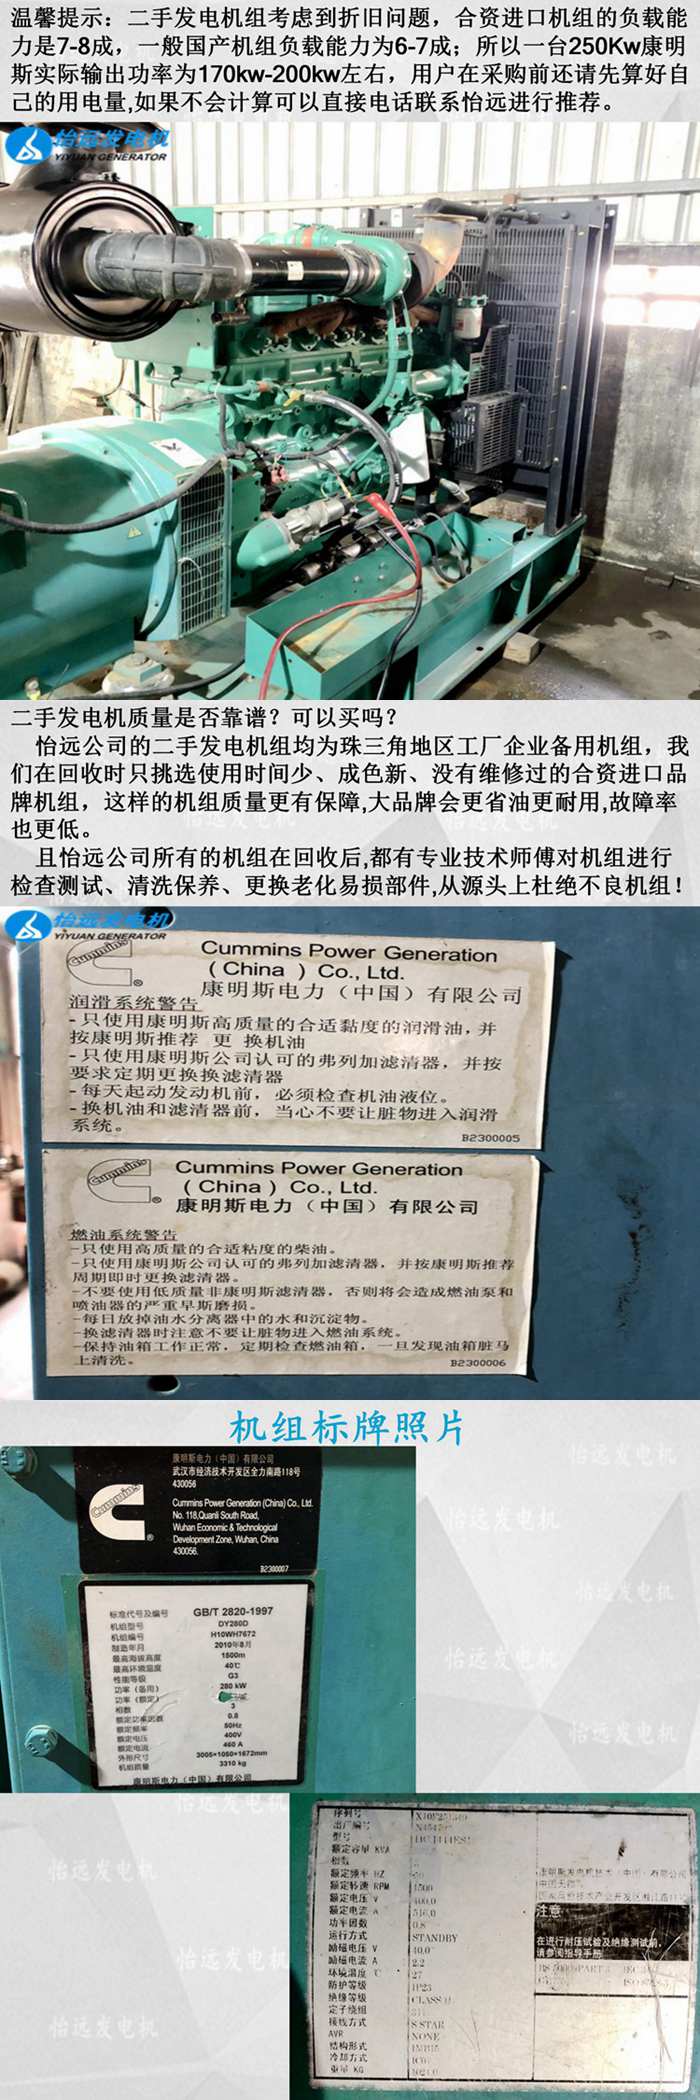 温馨提示：二手发电机组考虑到折旧问题，合资进口机组的负载能
力是7-8成，一般国产机组负载能力为6-7成；所以一台250Kw康明
斯实际输出功率为170kw-200kw左右，用户在采购前还请先算好自
己的用电量,如果不会计算可以直接电话联系怡远进行推荐。
怡远发电机
YIYUAN GENERATOR
二手发电机质量是否靠谱？可以买吗？
怡远公司的二手发电机组均为珠三角地区工厂企业备用机组，我
们在回收时只挑选使用时间少、成色新、没有维修过的合资进口品
牌机组，这样的机组质量更有保障,大品牌会更省油更耐用,故障率
也更低。
且怡远公司所有的机组在回收后,都有专业技术师傅对机组进行
检查测试、清洗保养、更换老化易损部件,从源头上杜绝不良机组！
怡远发电机
YIYUAN GENERATOR
Cummins
Cummins Power Generation
( China ) Co., Ltd.
康明斯电力（中国）有限公司
润滑系统警告
-只使用康明斯高质量的合适黏度的润滑油,并
按康明斯推荐 更 换机油
-只使用康明斯公司认可的弗列加滤清器，并按
要求定期更换换滤清器
-每天起动发动机前，必须检查机油液位。
-换机油和滤清器前，当心不要让脏物进入润滑
系统。
B2300005
Cummins
Cummins Power Generation
( China ) Co., Ltd.
康明斯电力（中国）有限公司
燃油系统警告
-只使用高质量的合适粘度的柴油。
-只使用康明斯公司认可的弗列加滤清器，并按康明斯推荐
周期即时更换滤清器。
-不要使用低质量非康明斯滤清器，否则将会造成燃油泵和
喷油器的严重早斯磨损。
-每日放掉油水分离器中的水和沉淀物。
-换滤清器时注意不要让脏物进入燃油系统。
-保持油箱工作正常，定期检查燃油箱，一旦发现油箱脏马
上清洗。
B2300006
机组标牌照片
康明斯电力（中国）有限公司
武汉市经济技术开发区全力南路118号
430056
Cummins
Cummins Power Generation (China) Co., Ltd.
No. 118,Quanli South Road,
Wuhan Economic & Technological
Development Zone, Wuhan, China
430056.
B2300007
标准代号及编号 GB/T 2820-1997
机组型号 DY280D
机组编号 H10WH7672
制造年月 2010年8月
最高海拔高度 1500m
最高环境温度 40℃
性能等级 G3
功率（备用） 280 kW
功率（额定）
相数 3
额定功率因数 0.8
额定频率 50Hz
额定电压 400V
额定电流 460 A
外形尺寸 3005×1050×1672mm
机组质量 3310 kg
康明斯电力（中国）有限公司
序列号
出厂编号
型号
额定容量 KVA
相数
额定频率 HZ
额定转速 RPM 1500
额定电压 V 400.0
额定电流 A 516.0
功率因数 0.8
运行方式 STANDBY
励磁电压 V 40.0
励磁电流 A 2.2
环境温度 ℃ 27
防护等级 IP23
绝缘等级 CLASS H
定子绕组
接线方式 S STAR
AVR NONE
结构形式
冷却方式
重量 KG
康明斯发电机技术（中国）有限公司
注意
在进行耐压试验及绝缘测试前，
请参阅指导手册